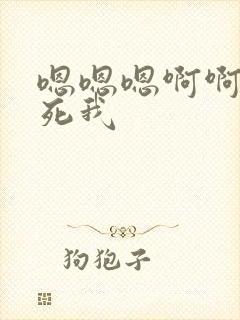 嗯嗯嗯啊啊
死我
狗狍子